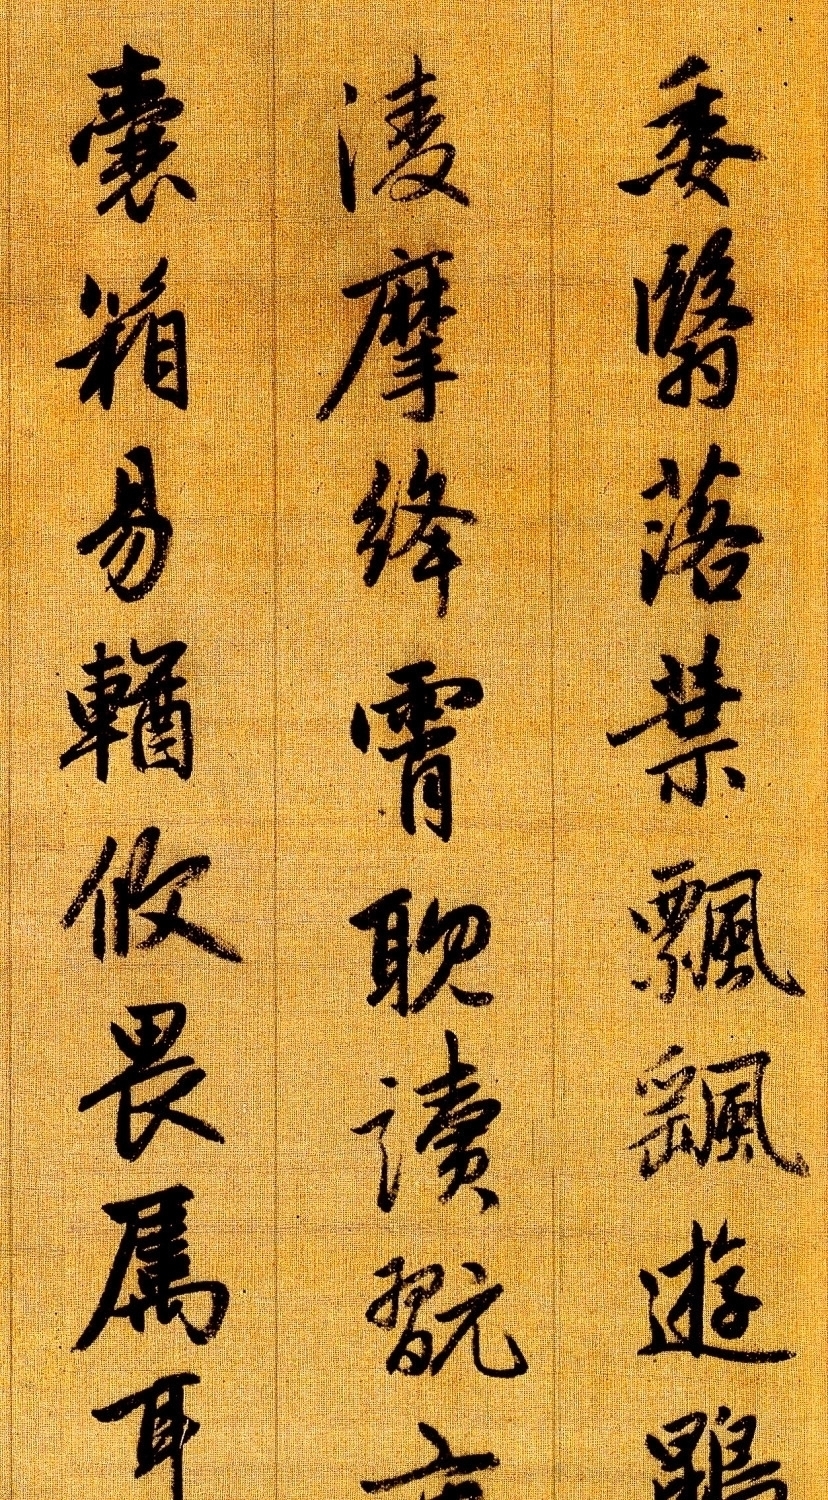 委翳落葉飄颻遊鵾
凌摩絳霄耽讀翫
囊箱易輶攸畏属耳